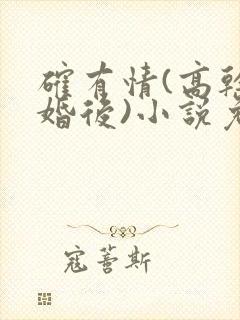 確有情(高幹
婚後)小說
寇薵斯